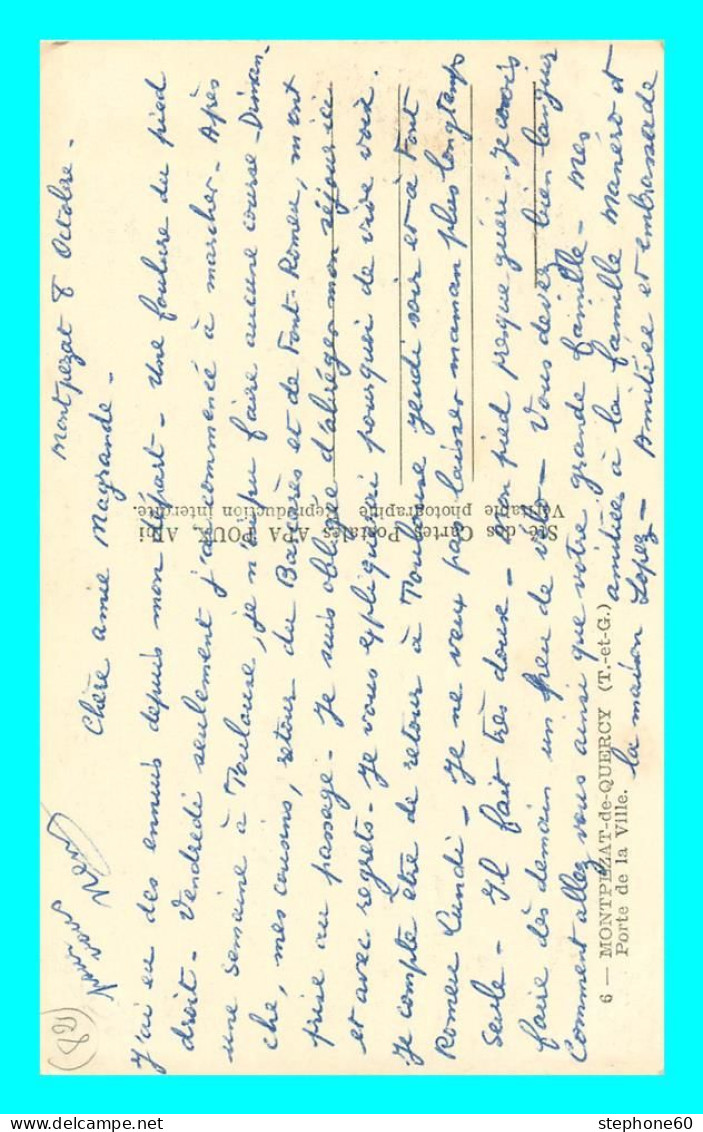 Montpezat 8 Octobre -
Chère amie Magrande -
J'ai eu des ennuis depuis mon départ - Une foulure du pied
droit - Vendredi seulement j'ai commencé à marcher - Après
une semaine à Toulouse, je n'ai pu faire aucune course - Diman-
che, mes cousins, retour du Barcarès et de Font-Romeu, m'ont
prise au passage - Je suis obligée d'abréger mon séjour ici
et avec regrets - Je vous expliquerai pourquoi de vive voix.
Je compte être de retour à Toulouse jeudi soir et à Font
Romeu Lundi - Je ne veux pas laisser maman plus longtemps
seule - Il fait très doux - Mon pied presque guéri - Je crois
faire dès demain un peu de vélo - Vous devez bien languir
Comment allez vous ainsi que votre grande famille - Mes
amitiés à la famille Manéro et
la maison Lopez - Amitiés et embrassade
Ste des Cartes Postales APA POUX, Albi
Véritable photographie Reproduction interdite.
6 — MONTPEZAT-de-QUERCY (T.-et-G.)
Porte de la Ville.
(82)
stephone60